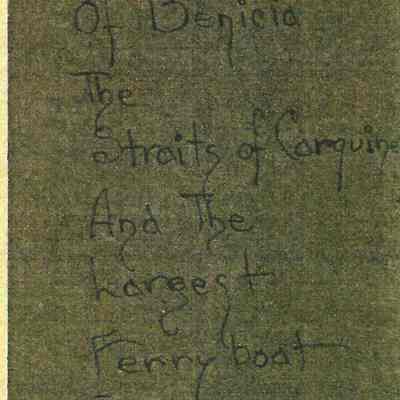 Of Benicia
The
Straits of Carquine
And The
Largest
Ferry boat